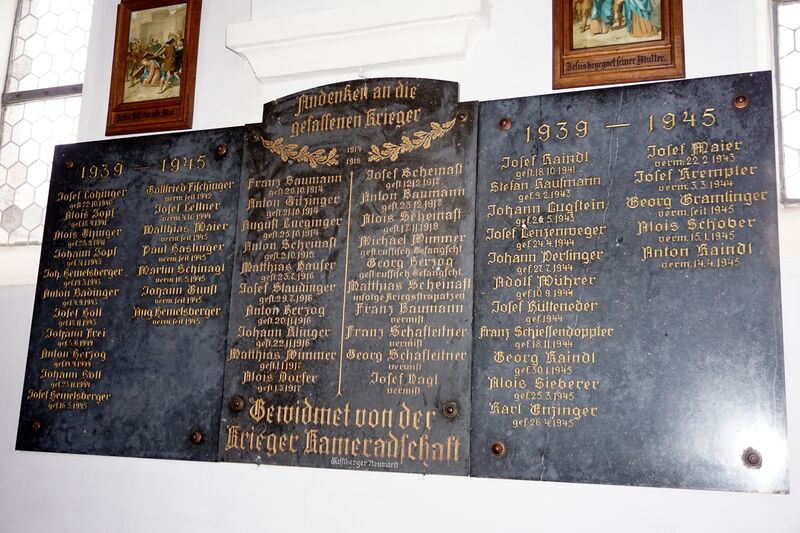 1939 – 1945
Josef Lohinger
gef. 22.10.1940
Alois Zopf
Alois Ehinger
gest. 25.9.1941
Johann Zopf
Joh. Hemelsberger
gef. 19.3.1943
Anton Badinger
gef. 4.9.1943
Josef Höll
gef. 15.11.1943
Johann Frei
gef. 5.6.1944
Anton Herzog
Johann Böll
gef. 23.11.1944
Josef Hemelsberger
gef. 16.5.1945
Gottfried Fischinger
verm. seit 1942
Josef Lettner
Matthias Maier
verm. seit 1945
Paul Haslinger
verm. seit 1945
Martin Schinagl
verm. 16.5.1945
Johann Gunst
verm. seit 1945
Aug. Hemelsberger
verm. seit 1945
Andenken an die
gefallenen Krieger
1914
1918
Franz Baumann
gest. 20.10.1914
Anton Gitzinger
gef. 21.10.1914
August Lueginger
gef. 25.10.1914
Anton Scheinast
gef. 2.10.1915
Matthias Hauser
gef. 23.6.1916
Josef Staudinger
gef. 29.7.1916
Anton Herzog
gef. 20.11.1916
Johann Klinger
gef. 22.11.1916
Matthias Wimmer
gef. 1.1.1917
Alois Dorfer
gef. 1.3.1917
Josef Scheinast
gest. 12.12.1917
Anton Baumann
gest. 23.12.1917
Alois Scheinast
gest. 17.1.1918
Michael Wimmer
gest. russisch Gefangscht.
Georg Herzog
gest. russisch Gefangscht.
Matthias Scheinast
infolge Kriegsstrapatzen
Franz Baumann
vermisst
Franz Schafleitner
vermisst
Georg Schafleitner
vermisst
Josef Nagl
vermisst
Gewidmet von der
Krieger Kameradschaft
1939 – 1945
Josef Kaindl
gest. 18.10.1941
Stefan Kaufmann
gef. 9.2.1943
Johann Augstein
gef. 26.5.1943
Josef Lenzenweger
gef. 24.4.1944
Johann Perlinger
gef. 27.7.1944
Adolf Mührer
gef. 10.9.1944
Josef Hütteneder
gef. 1944
Franz Schiessendoppler
gef. 18.11.1944
Georg Kaindl
gef. 30.1.1945
Alois Sieberer
gef. 25.3.1945
Karl Enzinger
gef. 26.4.1945
Josef Maier
verm. 22.2.1943
Josef Krempler
verm. 3.3.1944
Georg Gramlinger
verm. seit 1945
Alois Schober
verm. 15.1.1945
Anton Kaindl
verm. 14.4.1945
Jesus begegnet seiner Mutter.